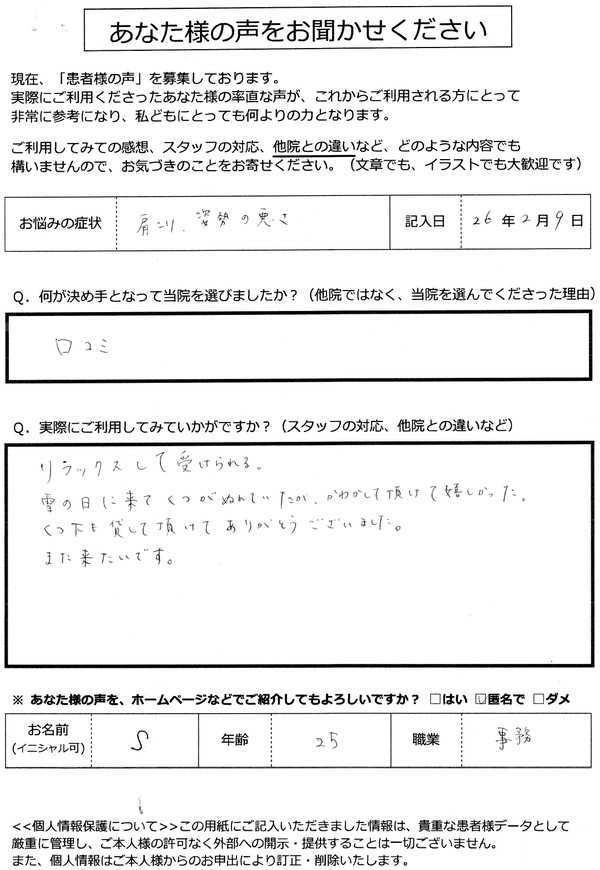 あなた様の声をお聞かせください
現在、「患者様の声」を募集しております。
実際にご利用くださったあなた様の率直な声が、これからご利用される方にとって
非常に参考になり、私どもにとっても何よりの力となります。
ご利用してみての感想、スタッフの対応、他院との違いなど、どのような内容でも
構いませんので、お気づきのことをお寄せください。（文章でも、イラストでも大歓迎です）
お悩みの症状 肩こり、姿勢の悪さ 記入日 26年2月9日
Q．何が決め手となって当院を選びましたか？（他院ではなく、当院を選んでくださった理由）
口コミ
Q．実際にご利用してみていかがですか？（スタッフの対応、他院との違いなど）
リラックスして受けられる。
雪の日に来てくつがぬれていたが、かわかして頂けて嬉しかった。
くつ下も貸して頂けてありがとうございました。
また来たいです。
※ あなた様の声を、ホームページなどでご紹介してもよろしいですか？ □はい ☑匿名で □ダメ
お名前 S 年齢 25 職業 事務
(イニシャル可)
<<個人情報保護について>>この用紙にご記入いただきました情報は、貴重な患者様データとして
厳重に管理し、ご本人様の許可なく外部への開示・提供することは一切ございません。
また、個人情報はご本人様からのお申出により訂正・削除いたします。